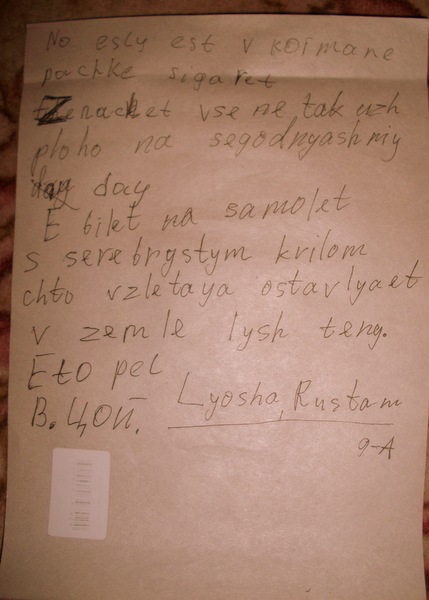 No esly est v kormane
pachke sigaret
Znachet vse ne tak uzh
ploho na segodnyashniy
day
E bilet na samolet
s serebrystym krilom
chto vzletaya ostavlyaet
v zemle lysh teny.
Eto pel
В. Цой.
Lyosha, Rustam
9-A